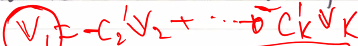 V₁ = -C₂' V₂ + ... - C'ₖ Vₖ